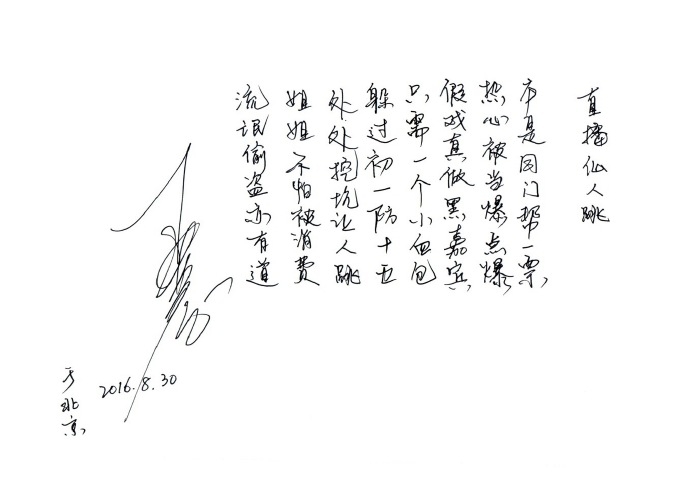 直播仙人跳
本是同门帮一票
热心被当爆点爆
假戏真做黑嘉宾
只需一个小血包
躲过初一防十五
处处挖坑让人跳
姐姐不怕被消费
流氓偷盗亦有道
2016.8.30
于北京